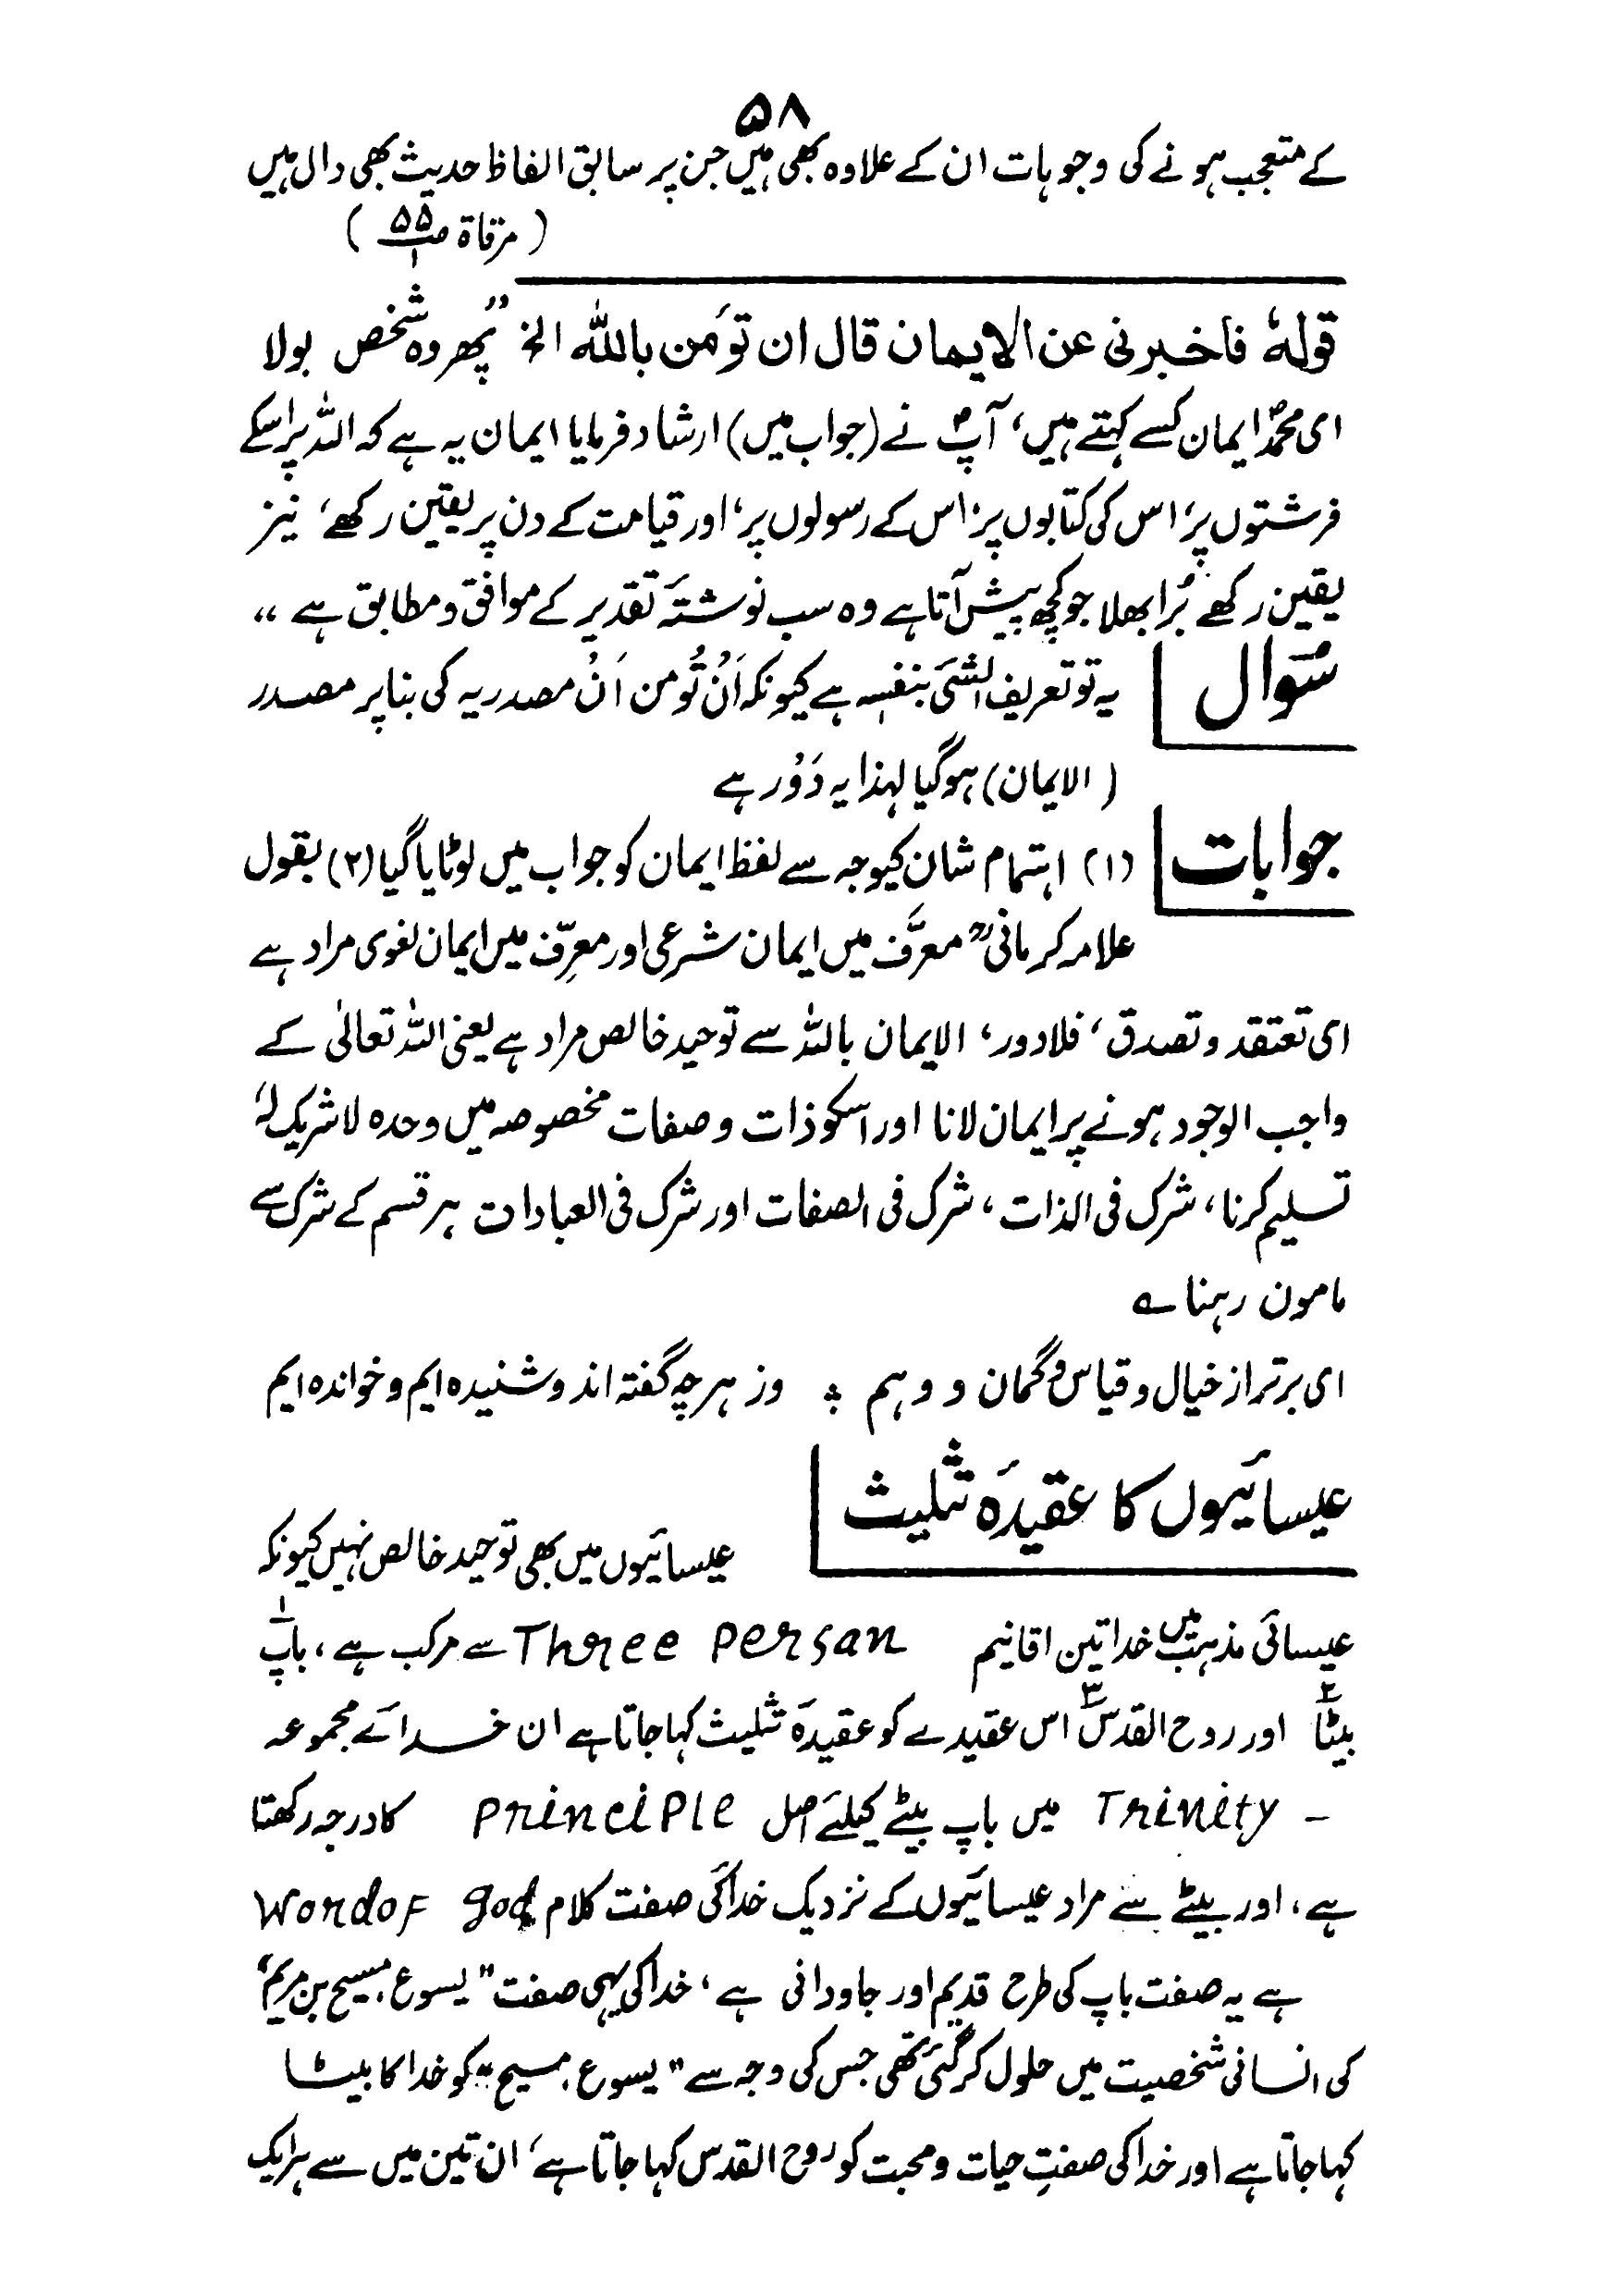 ۵۸
کے متعجب ہونے کی وجوہات ان کے علاوہ بھی ہیں جن پر سابق الفاظ حدیث بھی دال ہیں
( مرقاۃ ص۵۵ ۱ )
قولہٗ فاخبرنی عن الایمان قال ان تؤمن باللہ الخ ” پھر وہ شخص بولا
ای محمدؐ ایمان کسے کہتے ہیں، آپؐ نے (جواب میں) ارشاد فرمایا ایمان یہ ہے کہ اللہ پر اسکے
فرشتوں پر، اس کی کتابوں پر، اس کے رسولوں پر، اور قیامت کے دن پر یقین رکھے، نیز
یقین رکھے بُرا بھلا جو کچھ پیش آتا ہے وہ سب نوشتۂ تقدیر کے موافق و مطابق ہے “
سُوال یہ تو تعریف الشئ بنفسہ ہے کیونکہ اَنْ تُؤمن اَنْ مصدریہ کی بنا پر مصدر
( الایمان) ہوگیا لہذا یہ دَوْر ہے
جوابات (۱) اہتمام شان کیوجہ سے لفظ ایمان کو جواب میں لوٹایا گیا (۲) بقول
علامہ کرمانیؒ معرَّف میں ایمان شرعی اور معرِّف میں ایمان لغوی مراد ہے
ای تعتقد و تصدق، فلا دور، الایمان باللہ سے توحید خالص مراد ہے یعنی اللہ تعالیٰ کے
واجب الوجود ہونے پر ایمان لانا اور اسکو ذات و صفات مخصوصہ میں وحدہ لا شریک لہٗ
تسلیم کرنا، شرک فی الذات، شرک فی الصفات اور شرک فی العبادات ہر قسم کے شرک سے
مامون رہنا ؎
ای برتر از خیال و قیاس و گمان و وہم ؞ وز ہرچہ گفتہ اند و شنیدہ ایم و خواندہ ایم
عیسائیوں کا عقیدۂ تثلیث
عیسائیوں میں بھی توحید خالص نہیں کیونکہ
عیسائی مذہب میں خدا تین اقانیم Three Persan سے مرکب ہے، باپ۱
بیٹا۲ اور روح القدس۳ اس عقیدے کو عقیدۂ تثلیث کہا جاتا ہے ان خدائے مجموعہ
- Trinity میں باپ بیٹے کیلئے اصل Principle کا درجہ رکھتا
ہے، اور بیٹے سے مراد عیسائیوں کے نزدیک خدا کی صفت کلام Word of god
ہے یہ صفت باپ کی طرح قدیم اور جاودانی ہے، خدا کی یہی صفت ” یسوع مسیح بن مریم ؑ
کی انسانی شخصیت میں حلول کر گئی تھی جس کی وجہ سے ” یسوع مسیح “ کو خدا کا بیٹا
کہا جاتا ہے اور خدا کی صفتِ حیات و محبت کو روح القدس کہا جاتا ہے، ان تین میں سے ہر ایک